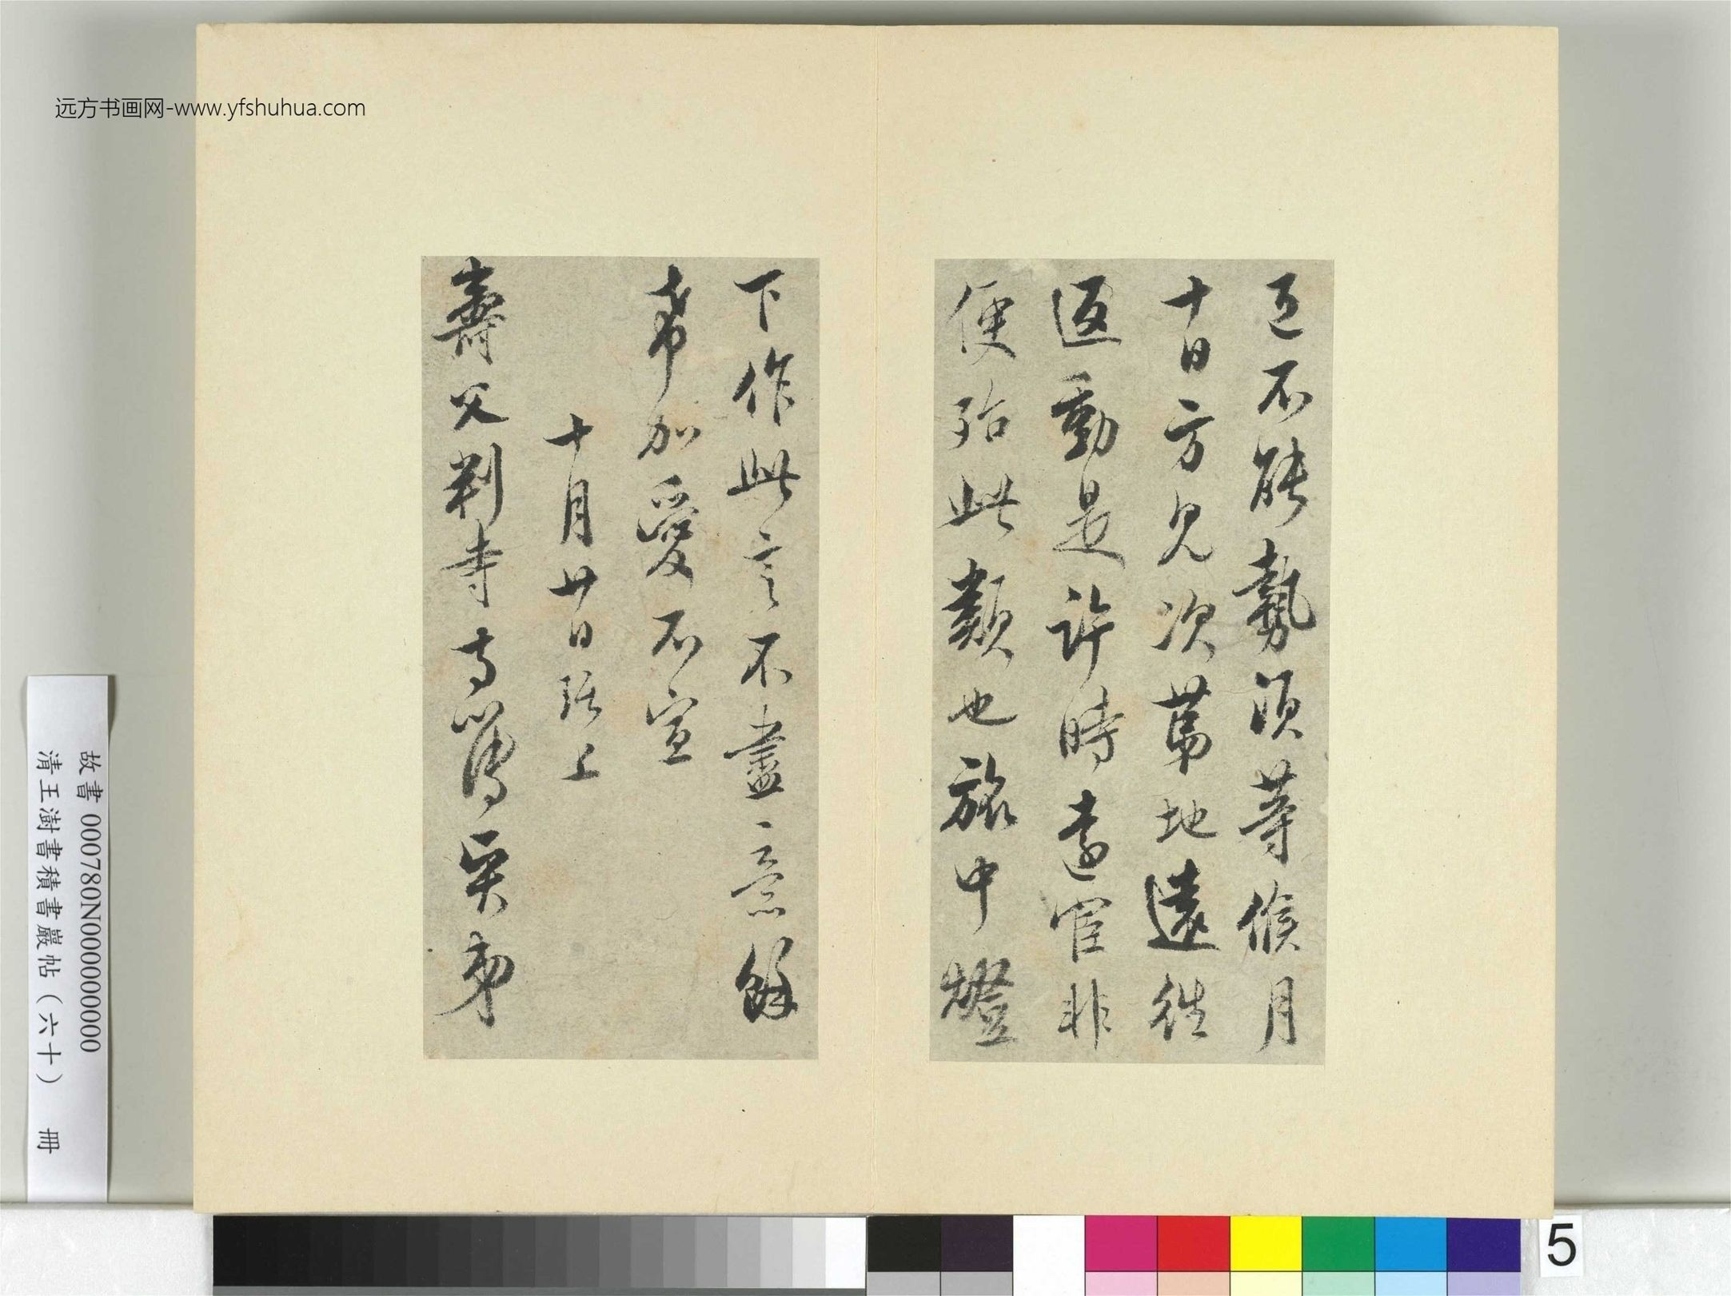 远方书画网-www.yfshuhua.com
不能勢須等候月
十日方又次第地遠往
返動是許時遠官非
便殆此類也旅中燈
下作此言不盡意餘
希加愛不宣
十月廿日 上
壽父判寺 賢弟
故書 000780N000000000
清王澍書積書巖帖(六十) 冊
5